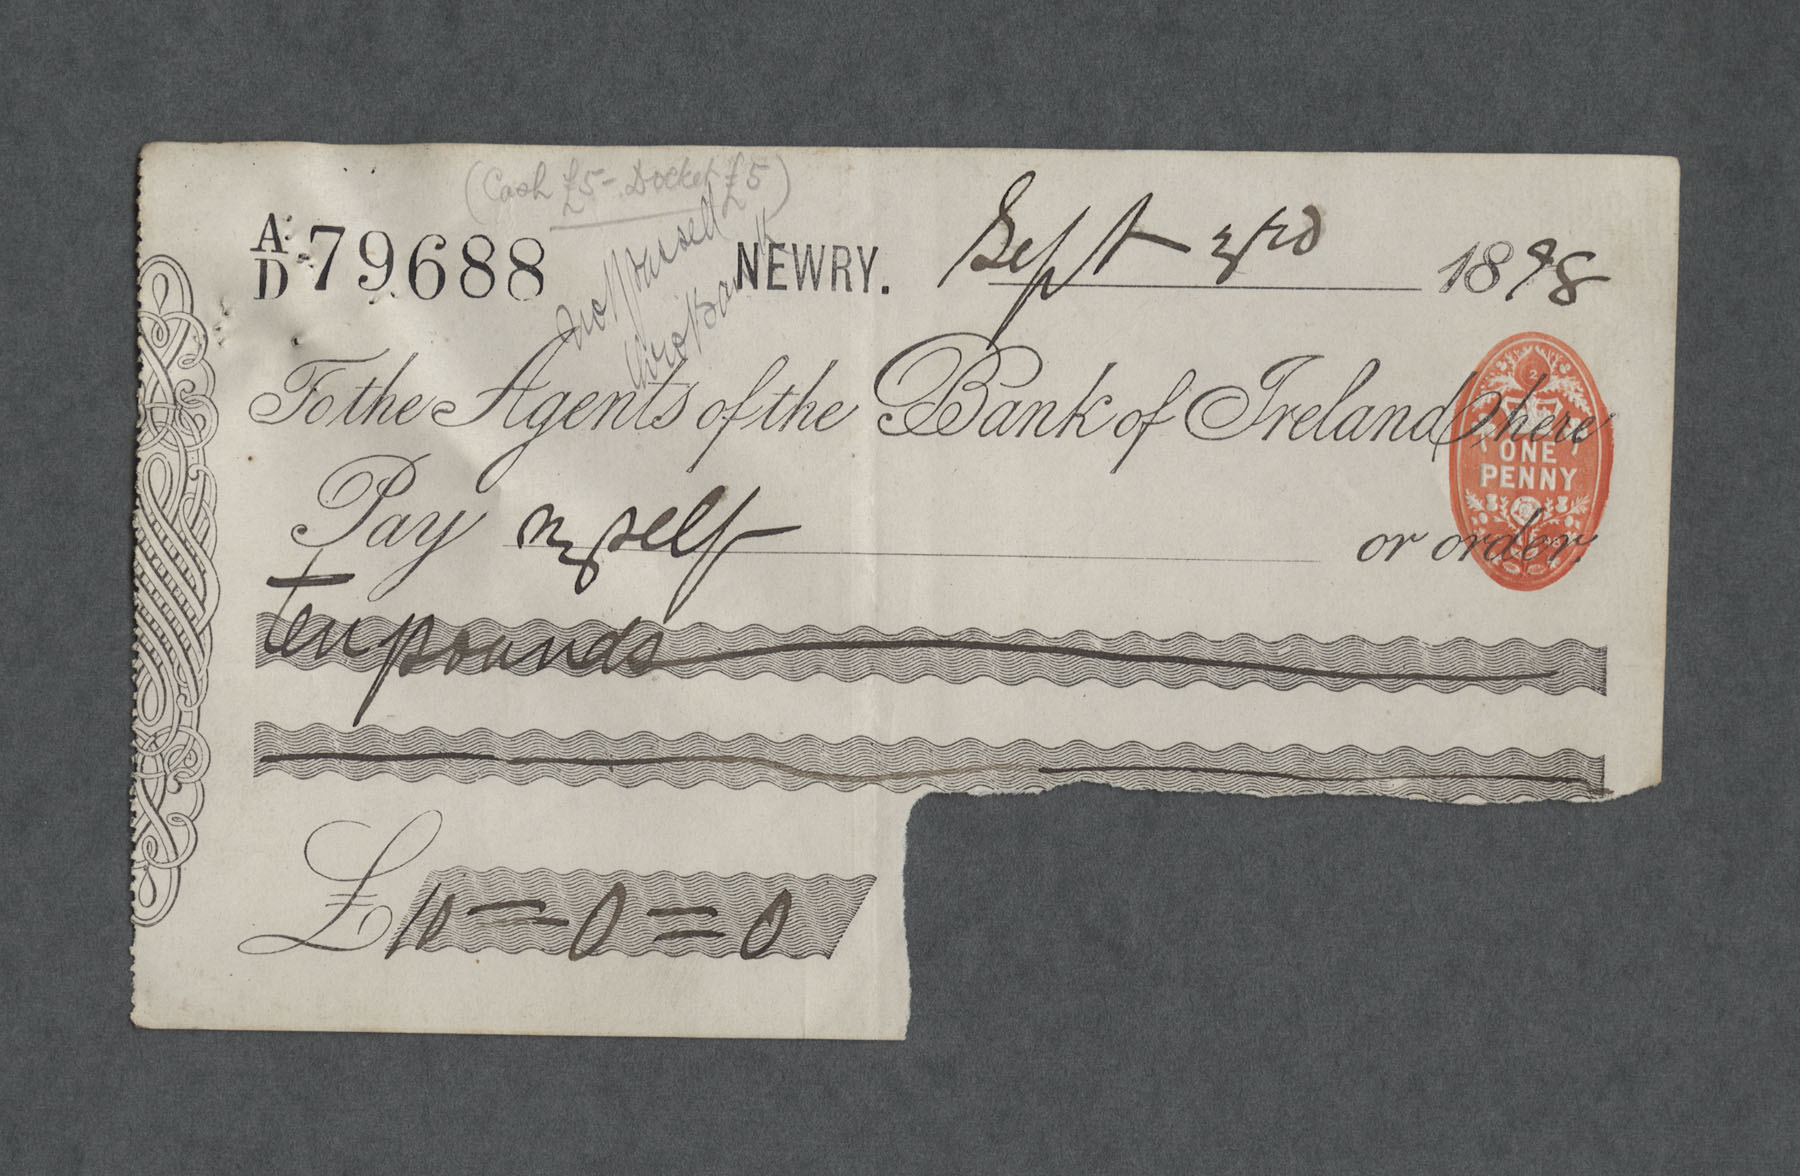 (Cash £5 - Docket £5)
A/D 79688
NEWRY. Sept 3rd 1898
To the Agents of the Bank of Ireland, here
ONE
PENNY
Pay myself or order
ten pounds
£ 10 = 0 = 0